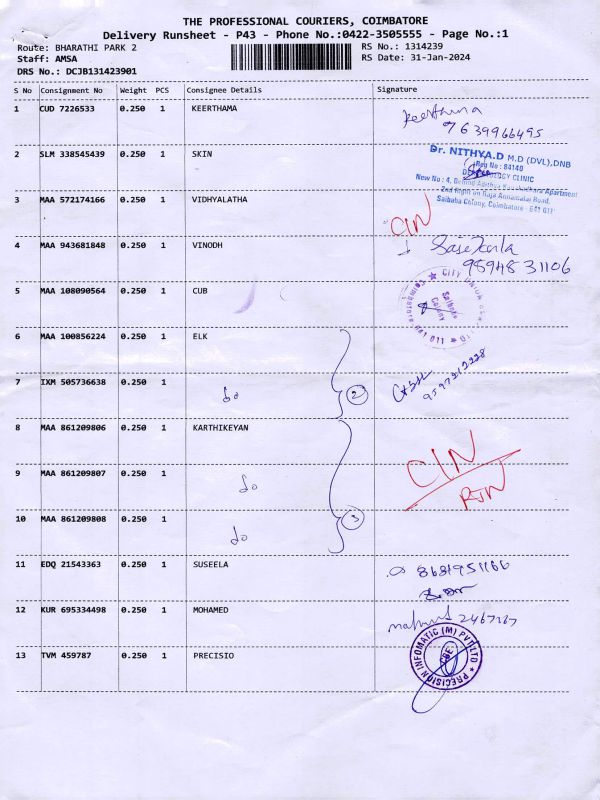 THE PROFESSIONAL COURIERS, COIMBATORE
Delivery Runsheet - P43 - Phone No.:0422-3505555 - Page No.:1
Route: BHARATHI PARK 2 RS No.: 1314239
Staff: AMSA RS Date: 31-Jan-2024
DRS No.: DCJB131423901
S No Consignment No Weight PCS Consignee Details Signature
1 CUD 7226533 0.250 1 KEERTHAMA Keerthama
7639966495
2 SLM 338545439 0.250 1 SKIN Dr. NITHYA.D M.D (DVL),DNB
Reg No : 84140
CLINIC
New No : 4, Apartment
Raja Annamalai Road,
Saibaba Colony, Coimbatore - 641 011
3 MAA 572174166 0.250 1 VIDHYALATHA CIN
4 MAA 943681848 0.250 1 VINODH
98948 31106
5 MAA 108090564 0.250 1 CUB CITY UNION
Saibaba
Colony
6 MAA 100856224 0.250 1 ELK
7 IXM 505736638 0.250 1 do 2
8 MAA 861209806 0.250 1 KARTHIKEYAN CIN
9 MAA 861209807 0.250 1 do RTN
10 MAA 861209808 0.250 1 do 3
11 EDQ 21543363 0.250 1 SUSEELA 8681951166
12 KUR 695334498 0.250 1 MOHAMED
13 TVM 459787 0.250 1 PRECISIO PRECISION INFOMATIC (M) PVT LTD
CBE